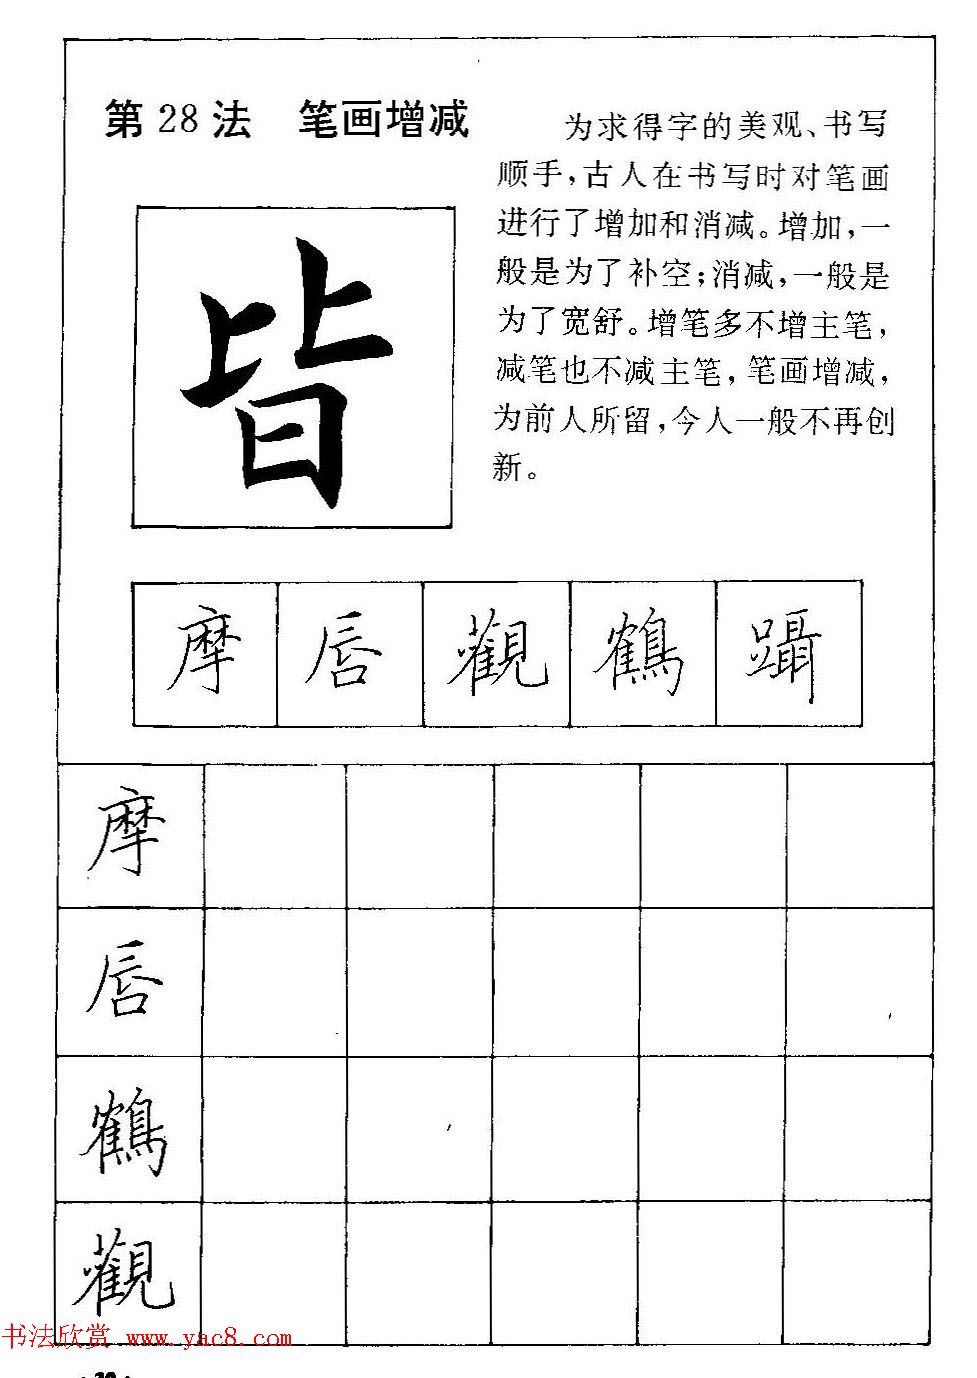 第28法 笔画增减
为求得字的美观、书写
顺手，古人在书写时对笔画
进行了增加和消减。增加，一
般是为了补空；消减，一般是
为了宽舒。增笔多不增主笔，
减笔也不减主笔，笔画增减，
为前人所留，今人一般不再创
新。
皆
摩 唇 觀 鶴 躡
摩
唇
鶴
觀
书法欣赏 www.yac8.com